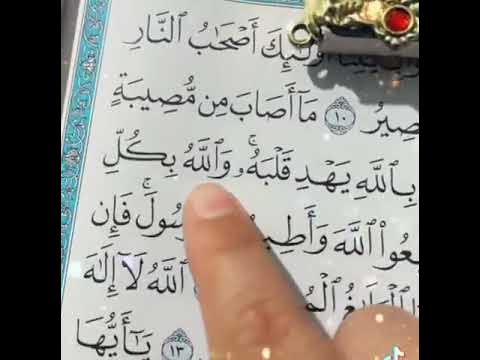 أُو۟لَـٰٓئِكَ أَصْحَـٰبُ ٱلنَّارِ
صِيرُ ١٠ مَآ أَصَابَ مِن مُّصِيبَةٍ
بِٱللَّهِ يَهْدِ قَلْبَهُۥۚ وَٱللَّهُ بِكُلِّ
عُوا۟ ٱللَّهَ وَأَطِيـ سُولَۚ فَإِن
ٱلْمُـ ٱللَّهُ لَآ إِلَـٰهَ
١٣ يَـٰٓأَيُّهَا